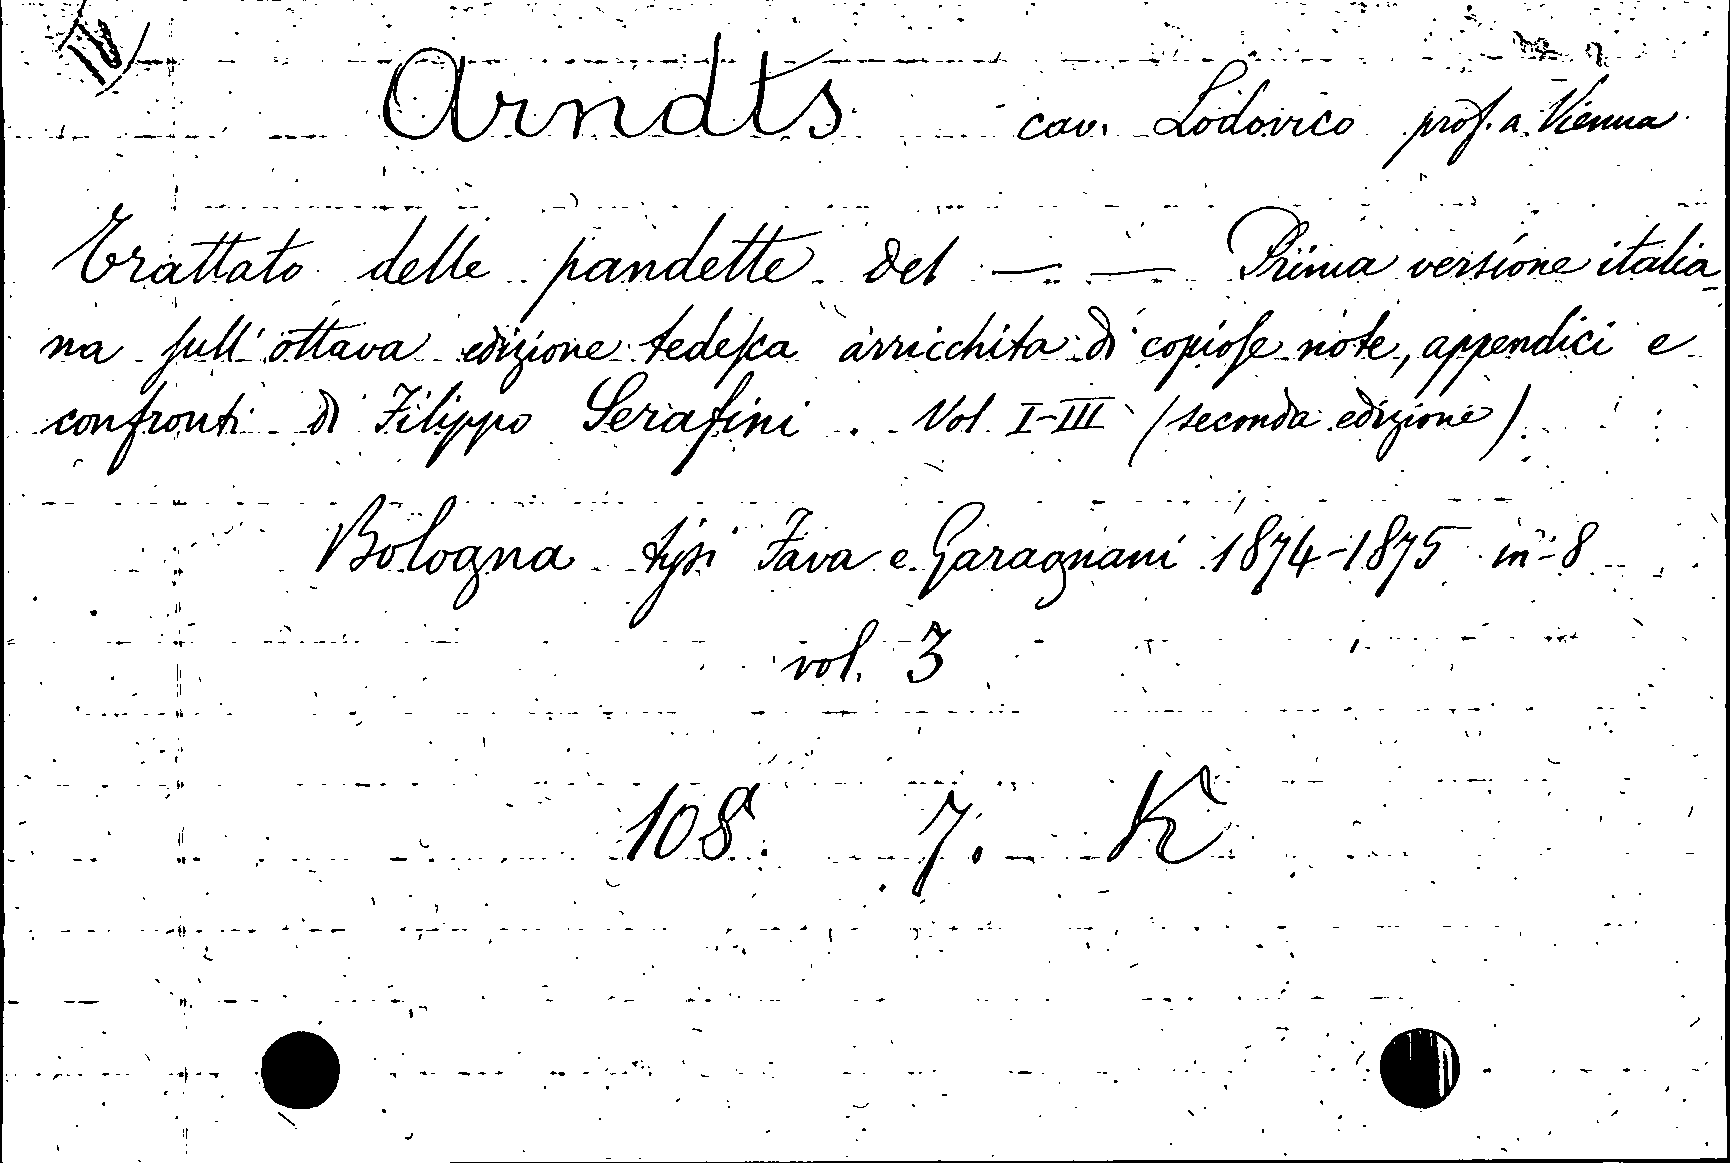 Arndts cav. Lodovico prof. a Vienna
Trattato delle pandette del — — Prima versione italia-
na sull'ottava edizione tedesca arricchita di copiose note, appendici e
confronti di Filippo Serafini. Vol. I-III (seconda edizione)
Bologna tipi Fava e Garagnani 1874-1875 in-8
vol. 3
108. 7. K